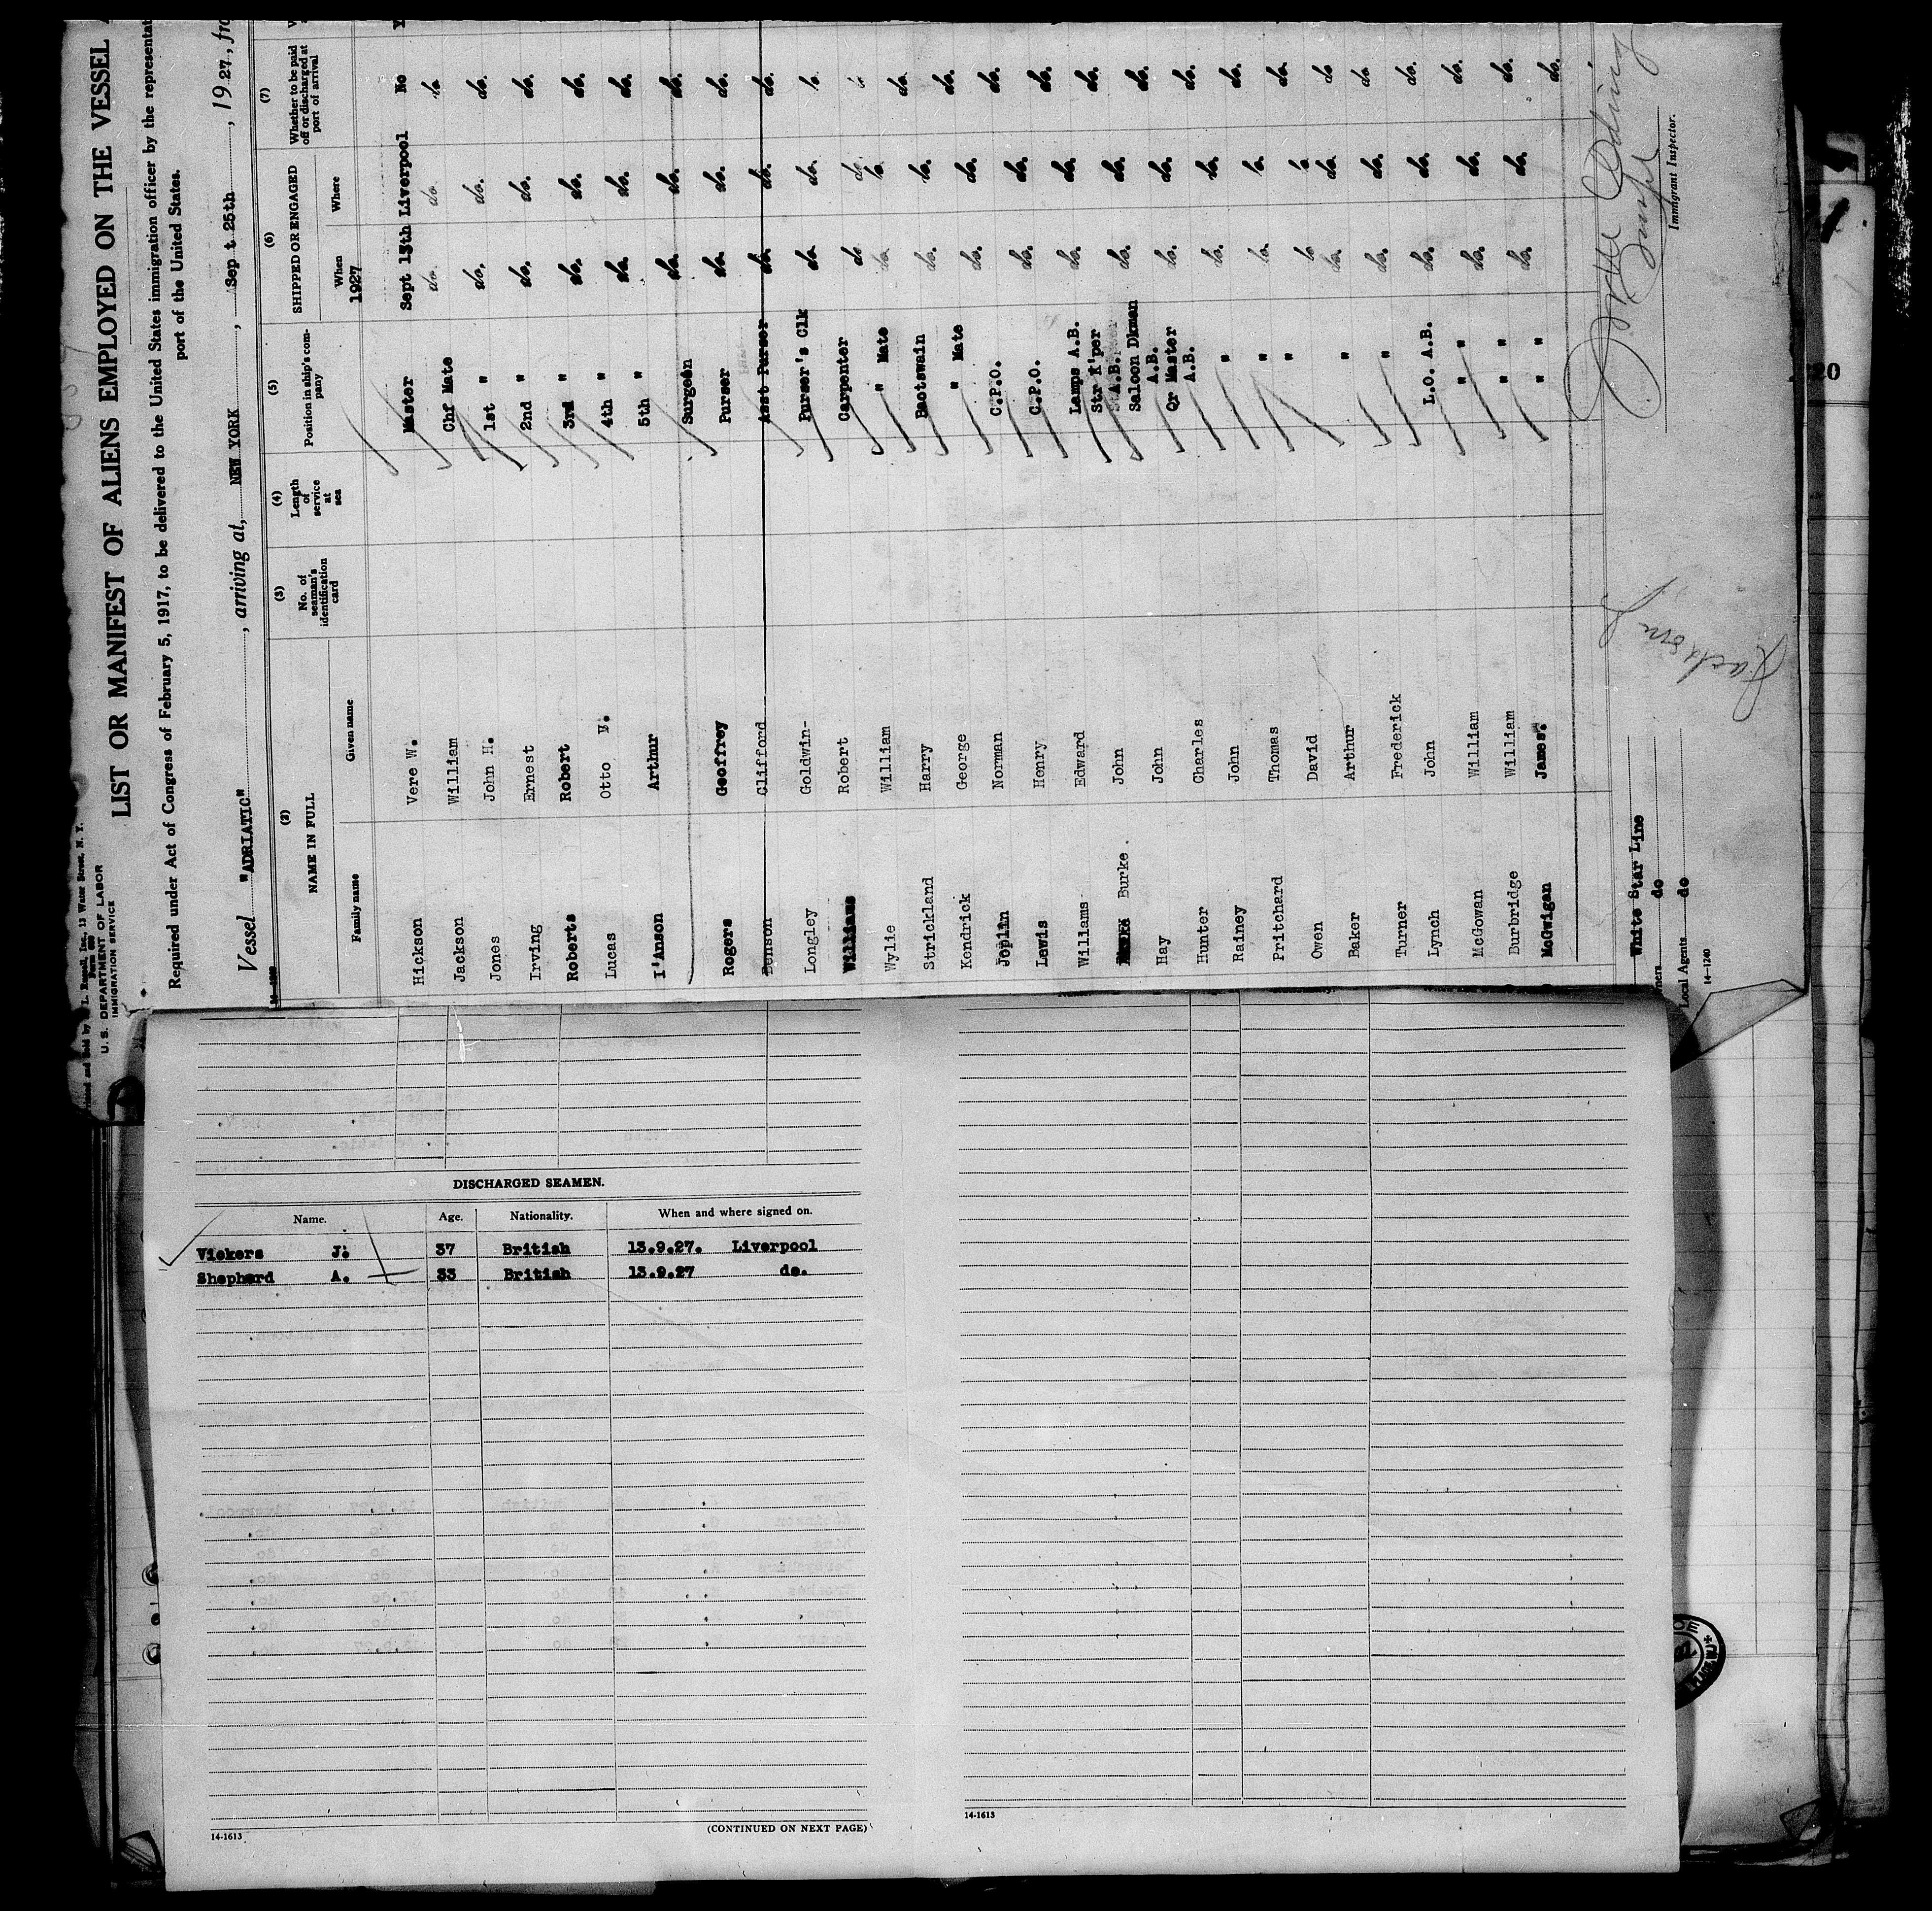 Form 680
U. S. DEPARTMENT OF LABOR
IMMIGRATION SERVICE
LIST OR MANIFEST OF ALIENS EMPLOYED ON THE VESSEL
Required under Act of Congress of February 5, 1917, to be delivered to the United States immigration officer by the representa
port of the United States.
Vessel "ADRIATIC", arriving at, NEW YORK, Sept 25th, 1927, fro
(2) (3) (4) (5) (6) (7)
NAME IN FULL No. of seaman's identification card Length of service at sea Position in ship's company SHIPPED OR ENGAGED Whether to be paid off or discharged at port of arrival
Family name Given name When Where
1927
Hickson Vere W. Master Sept 13th Liverpool No
Jackson William Chf Mate do. do. do
Jones John H. 1st " do. do. do.
Irving Ernest 2nd " do. do. do.
Roberts Robert 3rd " do. do. do.
Lucas Otto W. 4th " do. do. do.
I'Anson Arthur 5th " do. do. do.
Surgeon
Rogers Geoffrey Purser do. do. do.
Benson Clifford Asst Purser do. do. do.
Longley Goldwin- Purser's Clk do. do.
Williams Robert Carpenter do do
Wylie William " Mate do. do. do.
Strickland Harry Boatswain do. do. do.
Kendrick George " Mate do. do. do.
Joplin Norman C.P.O. do. do. do.
Lewis Henry C.P.O. do. do. do.
Williams Edward Lamps A.B. do. do. do.
Str K'per
Burke John A.B. do. do. do.
Hay John Saloon Dkman do. do. do.
A.B.
Hunter Charles Qr Master do. do. do.
Rainey John A.B. do. do. do.
Pritchard Thomas " do do
Owen David " do. do. do
Baker Arthur " do. do. do.
Turner Frederick " do. do. do.
Lynch John L.O. A.B. do. do. do.
McGowan William " " do. do. do.
Burbridge William " "
McGwigan James. " "
White Star Line
Owners do
Local Agents do
14-1240
Immigrant Inspector.
Jackson
20
DISCHARGED SEAMEN.
Name. Age. Nationality. When and where signed on.
Vickers J. 37 British 13.9.27. Liverpool
Shepherd A. 33 British 13.9.27 do.
14-1613
(CONTINUED ON NEXT PAGE)
14-1613